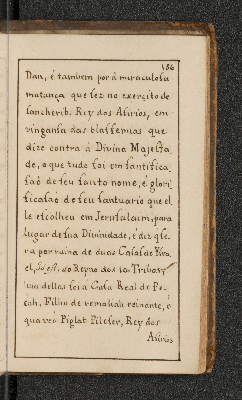 186
Dan, é tambem por á miraculosa
matança que fez no exerçito de
Sancherib, Rey dos Asirios, em
vingansa das blasfemias que
dize contra á Divina Majesta
de, o que tudo foi em santifica
saõ de seu santo nome, é glori
ficasaõ de seu santuario que el
le escolheu em Jerusalaim, para
lugar de sua Divindade, é diz q̃ se
ra por ruina de duas Casas de Ysra
el, do Reyno dos 10. Tribas,
uma dellas foi á Casa Real de Pe
cah, Filho de remaliah reinante, ó
qua veó Piglat Pileser, Rey dos
Asirios